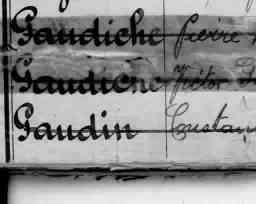 Gaudiche Pierre
Gaudiche Victor
Gaudin Constan